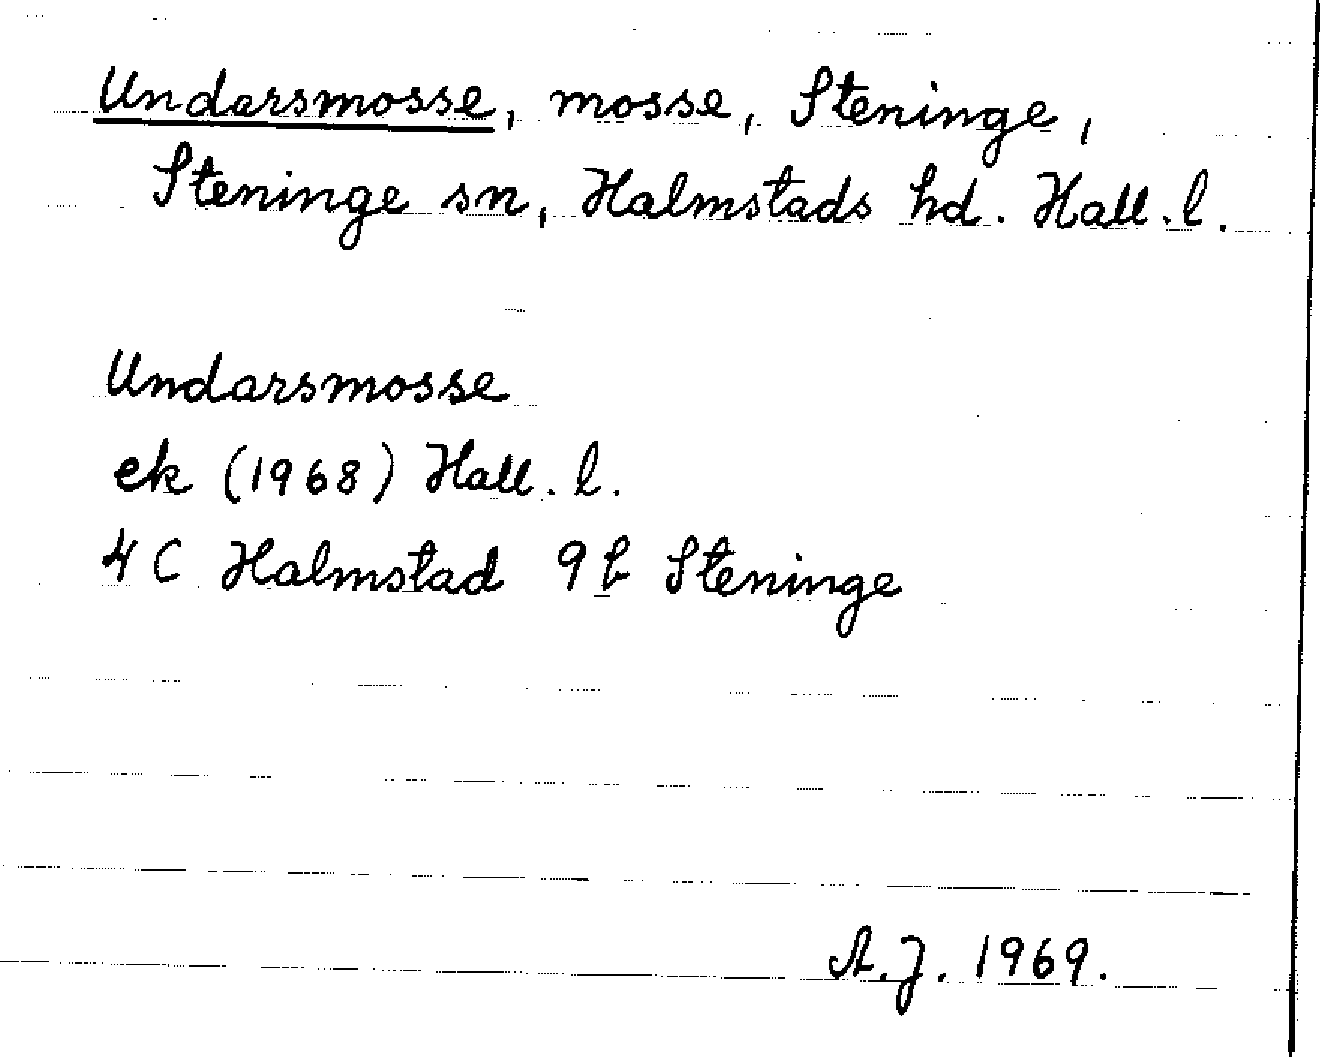 Undarsmosse, mosse, Steninge,
Steninge sn, Halmstads hd. Hall. l.
Undarsmosse
ek (1968) Hall. l.
4 C Halmstad 9 b Steninge
A.J. 1969.